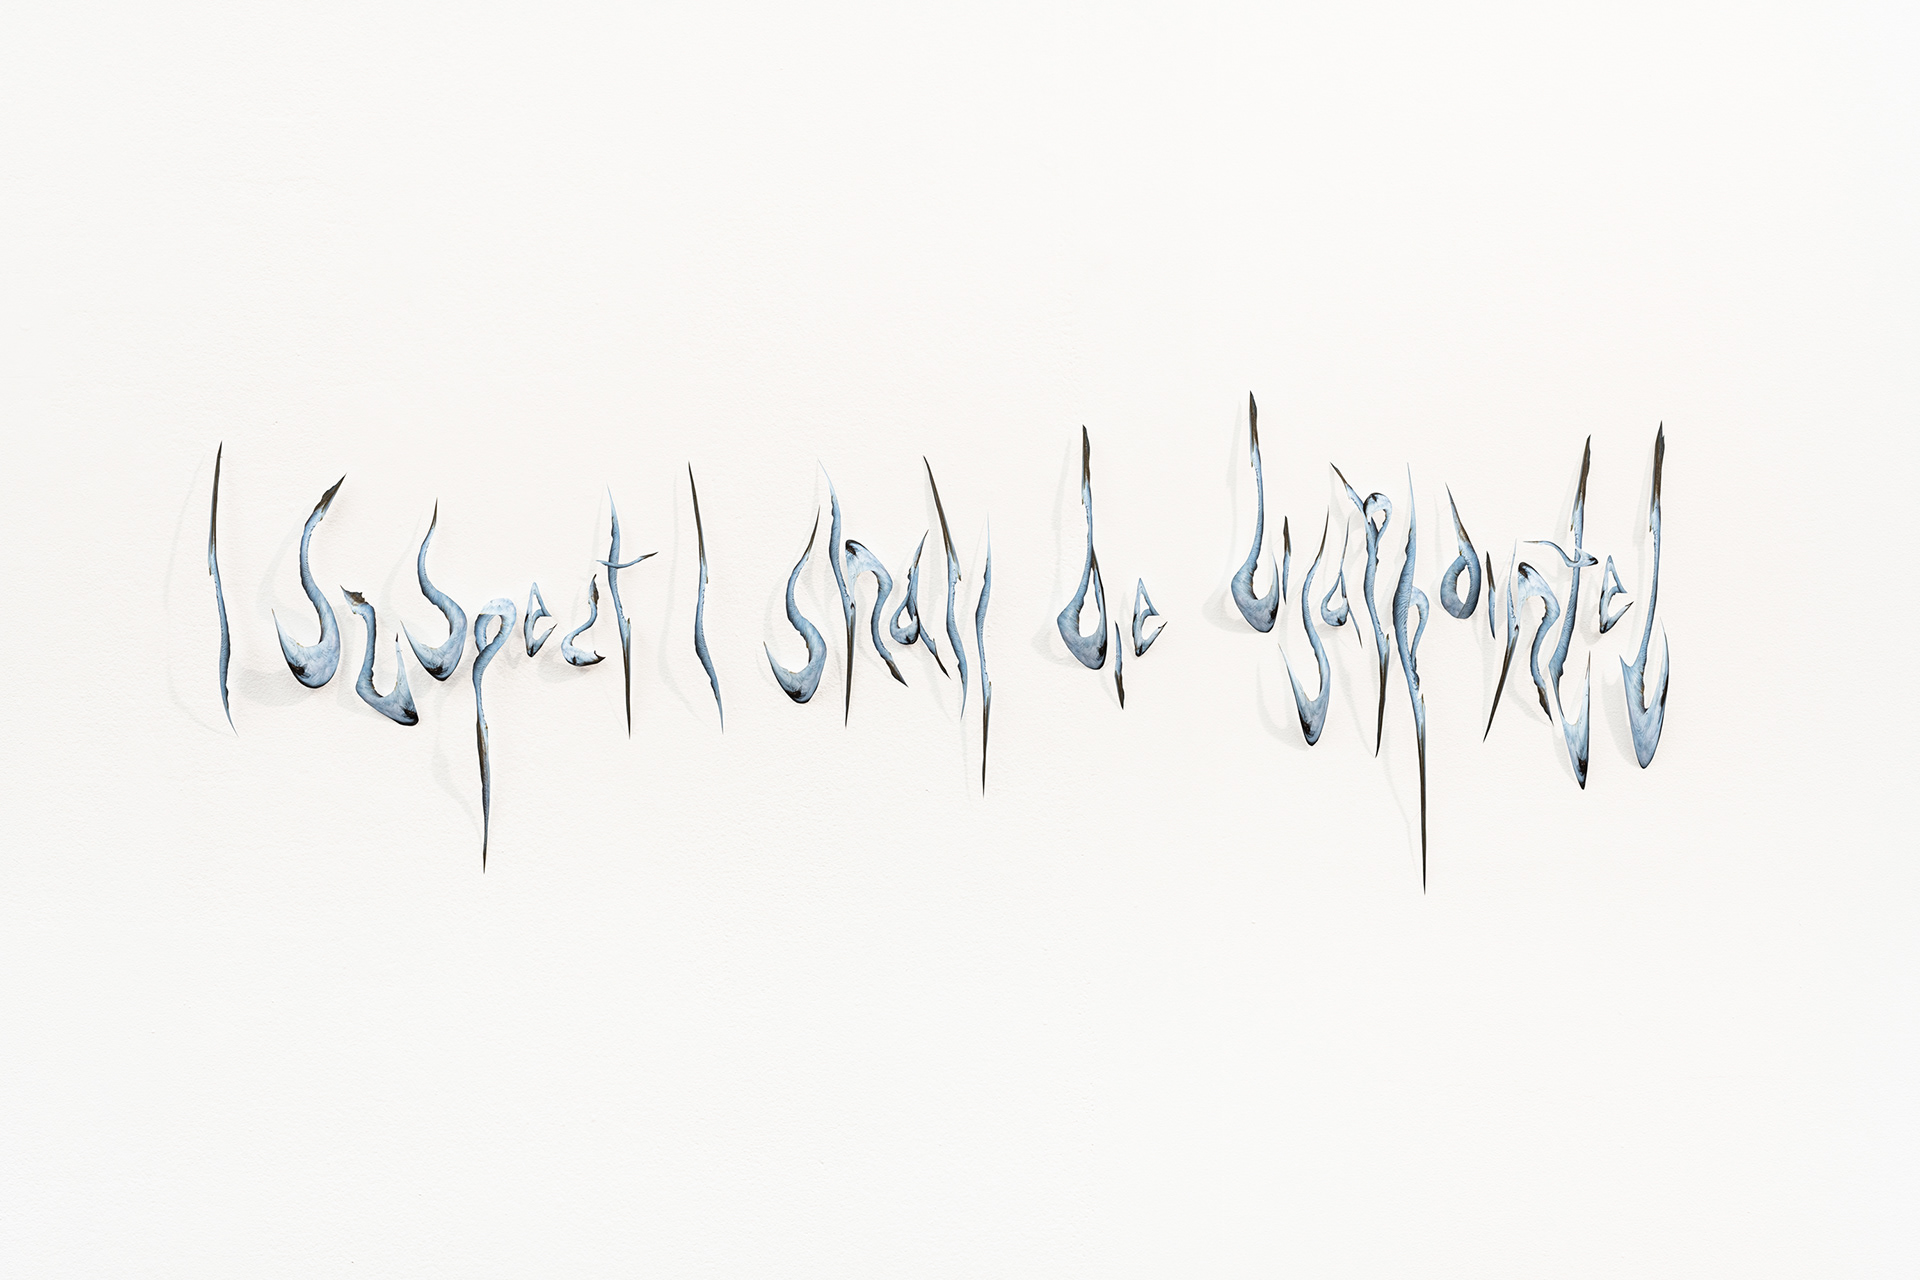 I suspect I shall be disappointed